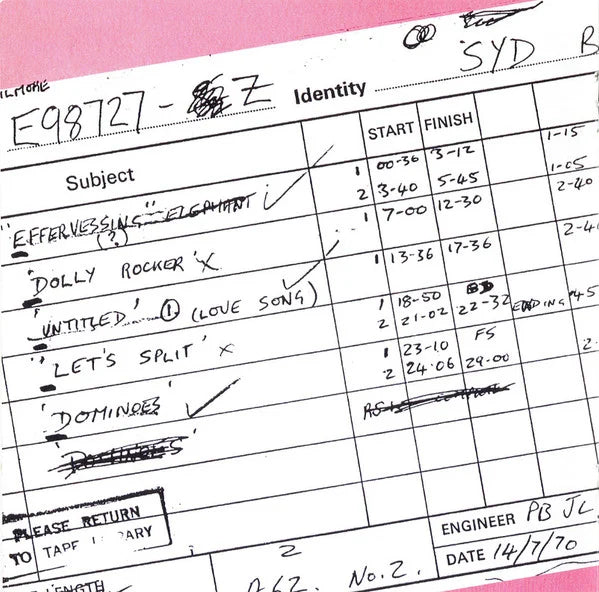 ILMORE
SYD B
E98727- Z Identity
Subject START FINISH
"EFFERVESSING" ELEPHANT 1 00-36 3-12 1-15
(?) 2 3-40 5-45 1-05
'DOLLY ROCKER' X 1 7-00 12-30 2-40
'UNTITLED' ① (LOVE SONG) 1 13-36 17-36 2-4
'LET'S SPLIT' X 1 18-50
2 21-02 22-32 ENDING 45
'DOMINOES' 1 23-10 FS
2 24.06 29-00 2-
'DOMINOES'
PLEASE RETURN
TO TAPE LIBRARY
ENGINEER PB JL
DATE 14/7/70
2
LENGTH No. 2.